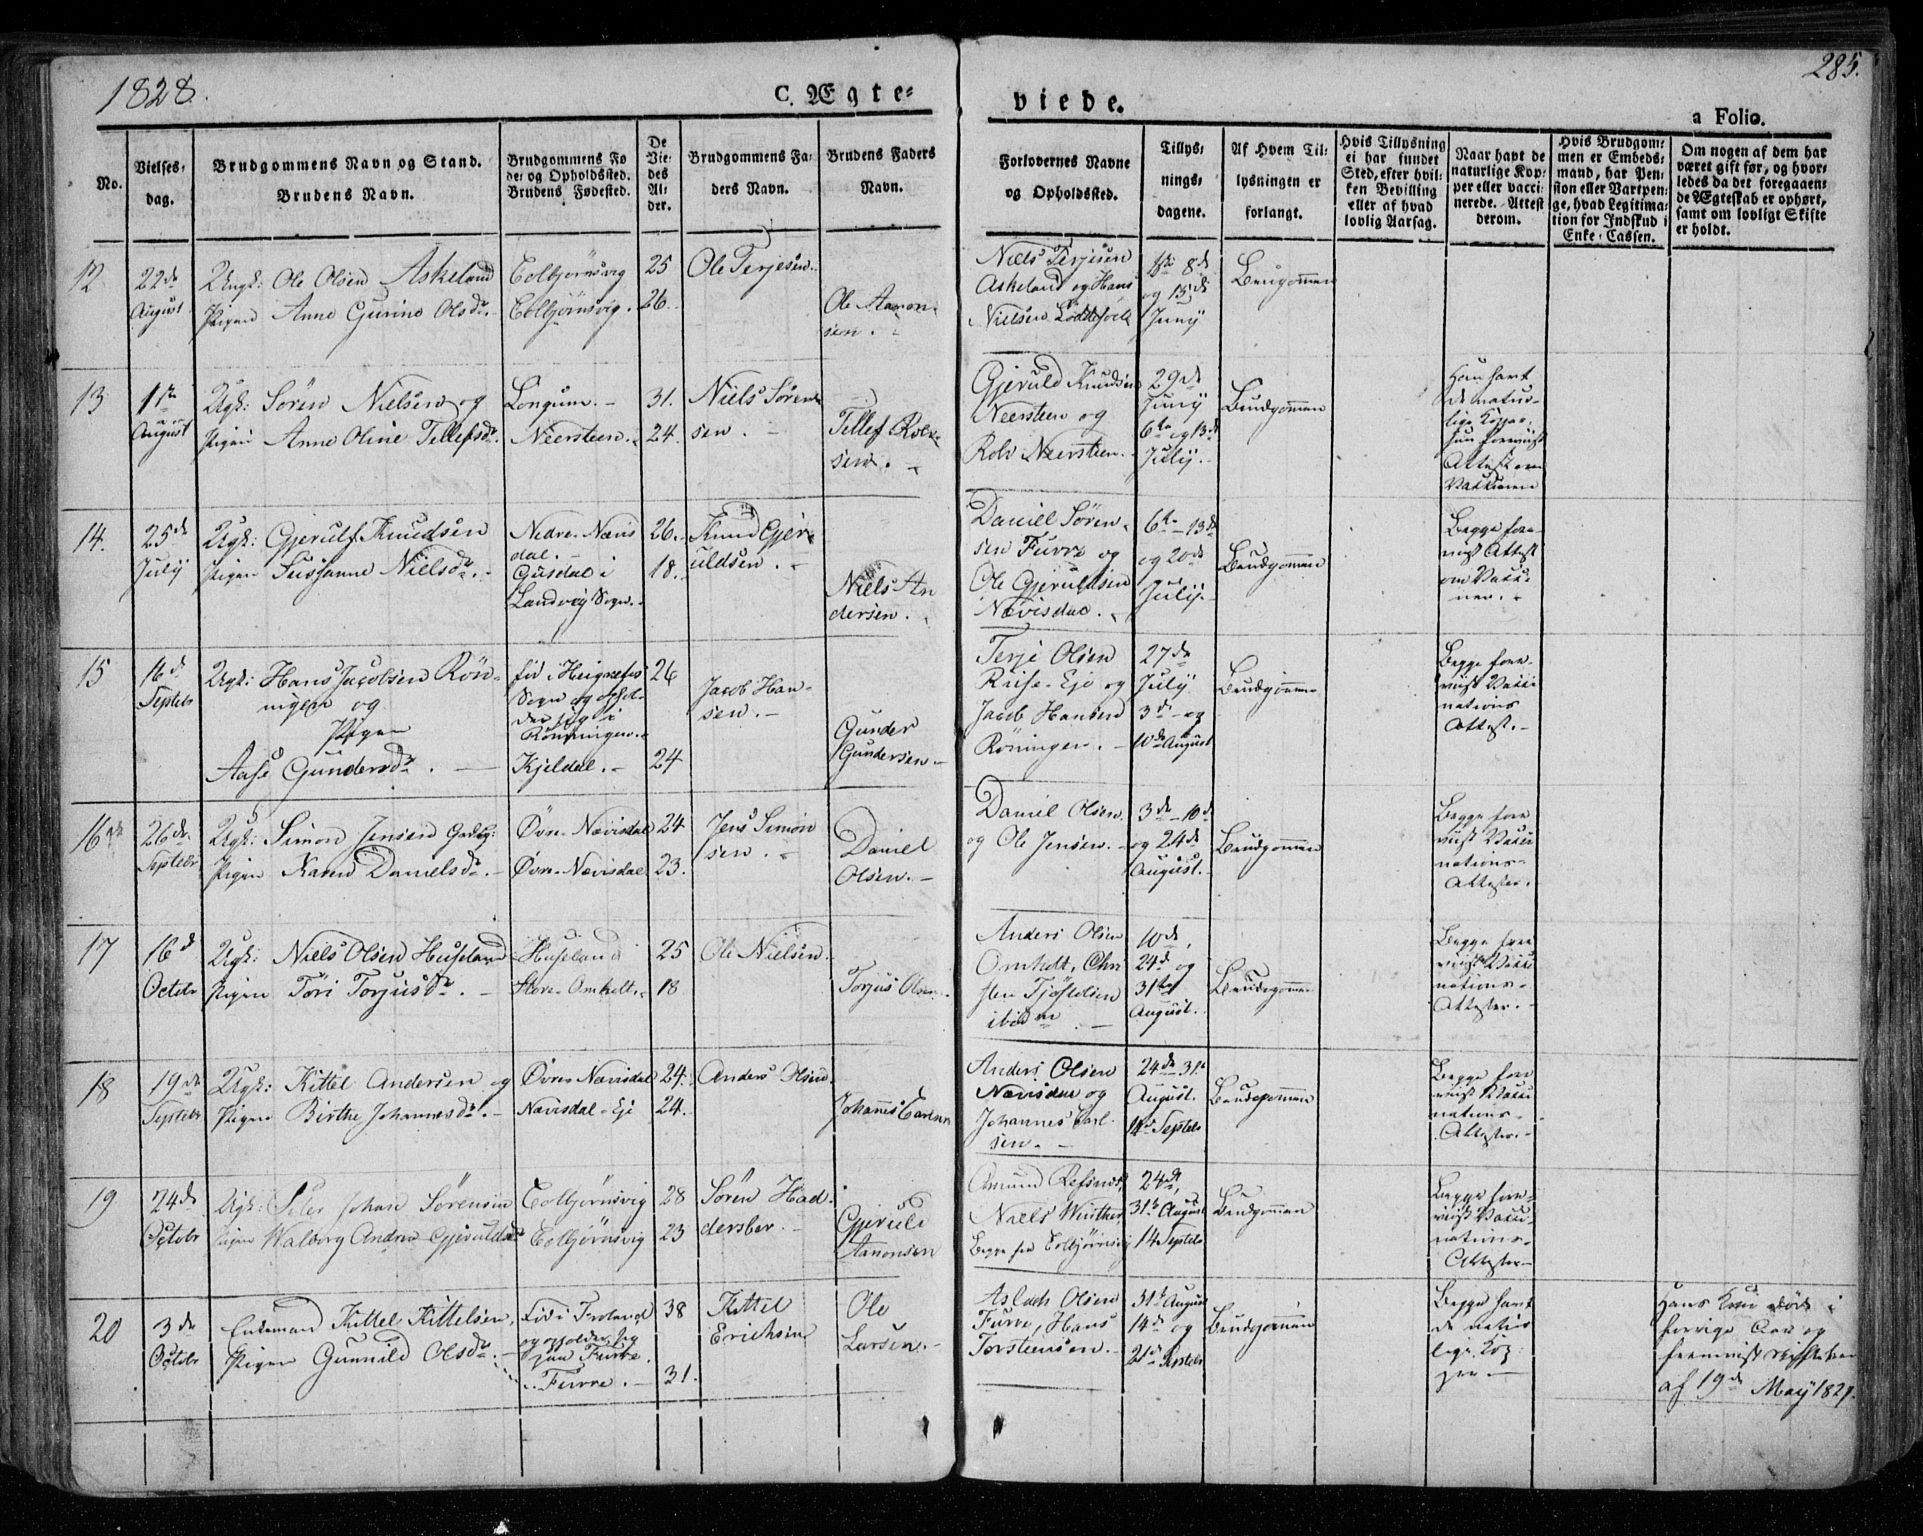 1828.
C. Ægte-
viede.
285.
a Folio.
No.
Vielses-
dag.
Brudgommens Navn og Stand.
Brudens Navn.
Brudgommens Fø
de- og Opholdssted.
Brudens Fødested.
De
Vie-
des
Al-
der.
Brudgommens Fa-
ders Navn.
Brudens Faders
Navn.
Forlovernes Navne
og Opholdssted.
Tillys-
nings-
dagene.
Af Hvem Til-
lysningen er
forlangt.
Hvis Tillysning
ei har fundet
Sted, efter hvil-
ken Bevilling
eller af hvad
lovlig Aarsag.
Naar havt de
naturlige Kop-
per eller vacci-
nerede. Attest
derom.
Hvis Brudgom-
men er Embeds-
mand, har Pen-
sion eller Vartpen-
ge, hvad Legitima-
tion for Indskud i
Enke-Cassen.
Om nogen af dem har
været gift før, og hvor-
ledes da det foregaaen-
de Ægteskab er ophørt,
samt om lovligt Skifte
er holdt.
12
22de
August
Ungk: Ole Olsen Askeland
Pigen Anne Gurine Olsdr.
Colbjörnsvig
Colbjörnsvig.
25
26.
Ole Terjesen.
Ole Aanon-
sen.
Niels Terjesen
Askeland og Hans
Nielsen
1ste 8de
og 15de
Juny
Brudgommen
13
1ste
August
Ugk: Sören Nielsen og
Pigen Anne Oline Tellefsdr.
Longum.
Neersteen.
31.
24.
Niels Sören-
sen.
Tellef Rolv-
sen.
Gjeruld Knudsen
Neersteen og
Rolv Neersteen.
29de
Juny
6te og 13de
July.
Brudgommen
Han havt
de natur-
lige Kopper,
hun forevist
Attest om
Vaccinen
14.
25de
July
Ugk: Gjerulf Knudsen
Pigen Susanne Nielsdr.
Nedre Nævis
dal.
Gusdal i
Landvig Sogn.
26.
18.
Knud Gjer-
uldsen.
Niels An
dersen.
Daniel Sören-
sen Furre og
Ole Gjeruldsen
Nævisdal.
6te 13de
og 20de
July.
Brudgommen
Begge fore-
vist Attest
om Vacci-
nen.
15
16de
Septebr
Ugk: Hans Jacobsen Rön-
ningen og
Pigen
Aase Gundersdr.
fød i
Sogn og ophol-
der sig i
Rönningen.
Kjeldal.
26
24
Jacob Han-
sen.
Gunder
Gundersen.
Terje Olsen
Riise-Eje og
Jacob Hansen
Röningen.
27de
July
3de og
10de August
Brudgommen
Begge fore-
vist Vacci
nations
Attest.
16de
26de
Septebr
Ugk: Simon Jensen
Pigen Karen Danielsdr.
Øvre Nævisdal
Øvre Nævisdal
24
23.
Jens Simon
sen.
Daniel
Olsen.
Daniel Olsen
og Ole Jensen.
3de 10de
og 24de
August.
Brudgommen
Begge fore
vist Vacci
nations-
Attester.
17
16de
Octobr
Ugk: Niels Olsen Huseland
Pigen Tori Torjusdr.
Huseland
Store Omholt.
25
18
Ole Nielsen.
Torjus Olsen.
Anders Olsen
Omholt, Chri
sten Tjöstelsen
ibidem
10de,
24de og
31te
August.
Brudgommen
Begge fore
vist Vacci
nations-
Attester.
18
19de
Septebr
Ugk: Kittel Andersen og
Pigen Birthe Johannesdr.
Øvre Nævisdal
Nævisdal-Eje
24.
24.
Anders Olsen.
Johannes Carlsen
Anders Olsen
Nævisdal og
Johannes Carl-
sen.
24de 31te
August.
14de Septebr
Brudgommen
Begge fore
vist Vacci
nations-
Attester.
19
24de
Octobr
Ugk: Peter Johan Sörensen
Pigen Walborg Andrea Gjeruldsdr
Colbjörnsvig
Colbjörnsvig
28
23
Sören Had-
dersber.
Gjeruld
Aanonsen
Amund Refsnes,
Niels Winther
Begge fra Colbjörnsvig
24de,
31te August
14 Septebr
Brudgommen
Begge fore-
vist Vacci-
nations-
Attester
20
3de
Octobr
Enkemand Kittel Kittelsen,
Pigen Gunnild Olsdr.
Fød i Froland
og opholder sig
paa Furre.
Furre.
38
31.
Kittel
Erichsen
Ole
Larsen.
Aslach Olsen
Furre, Hans
Torstensen.
31te August
14de og
21de Septebr
Brudgommen
Begge havt
de natur
lige Kop-
per.
Hans Kone døde i
forrige Aar og
fremvist
af 19de May 1827.